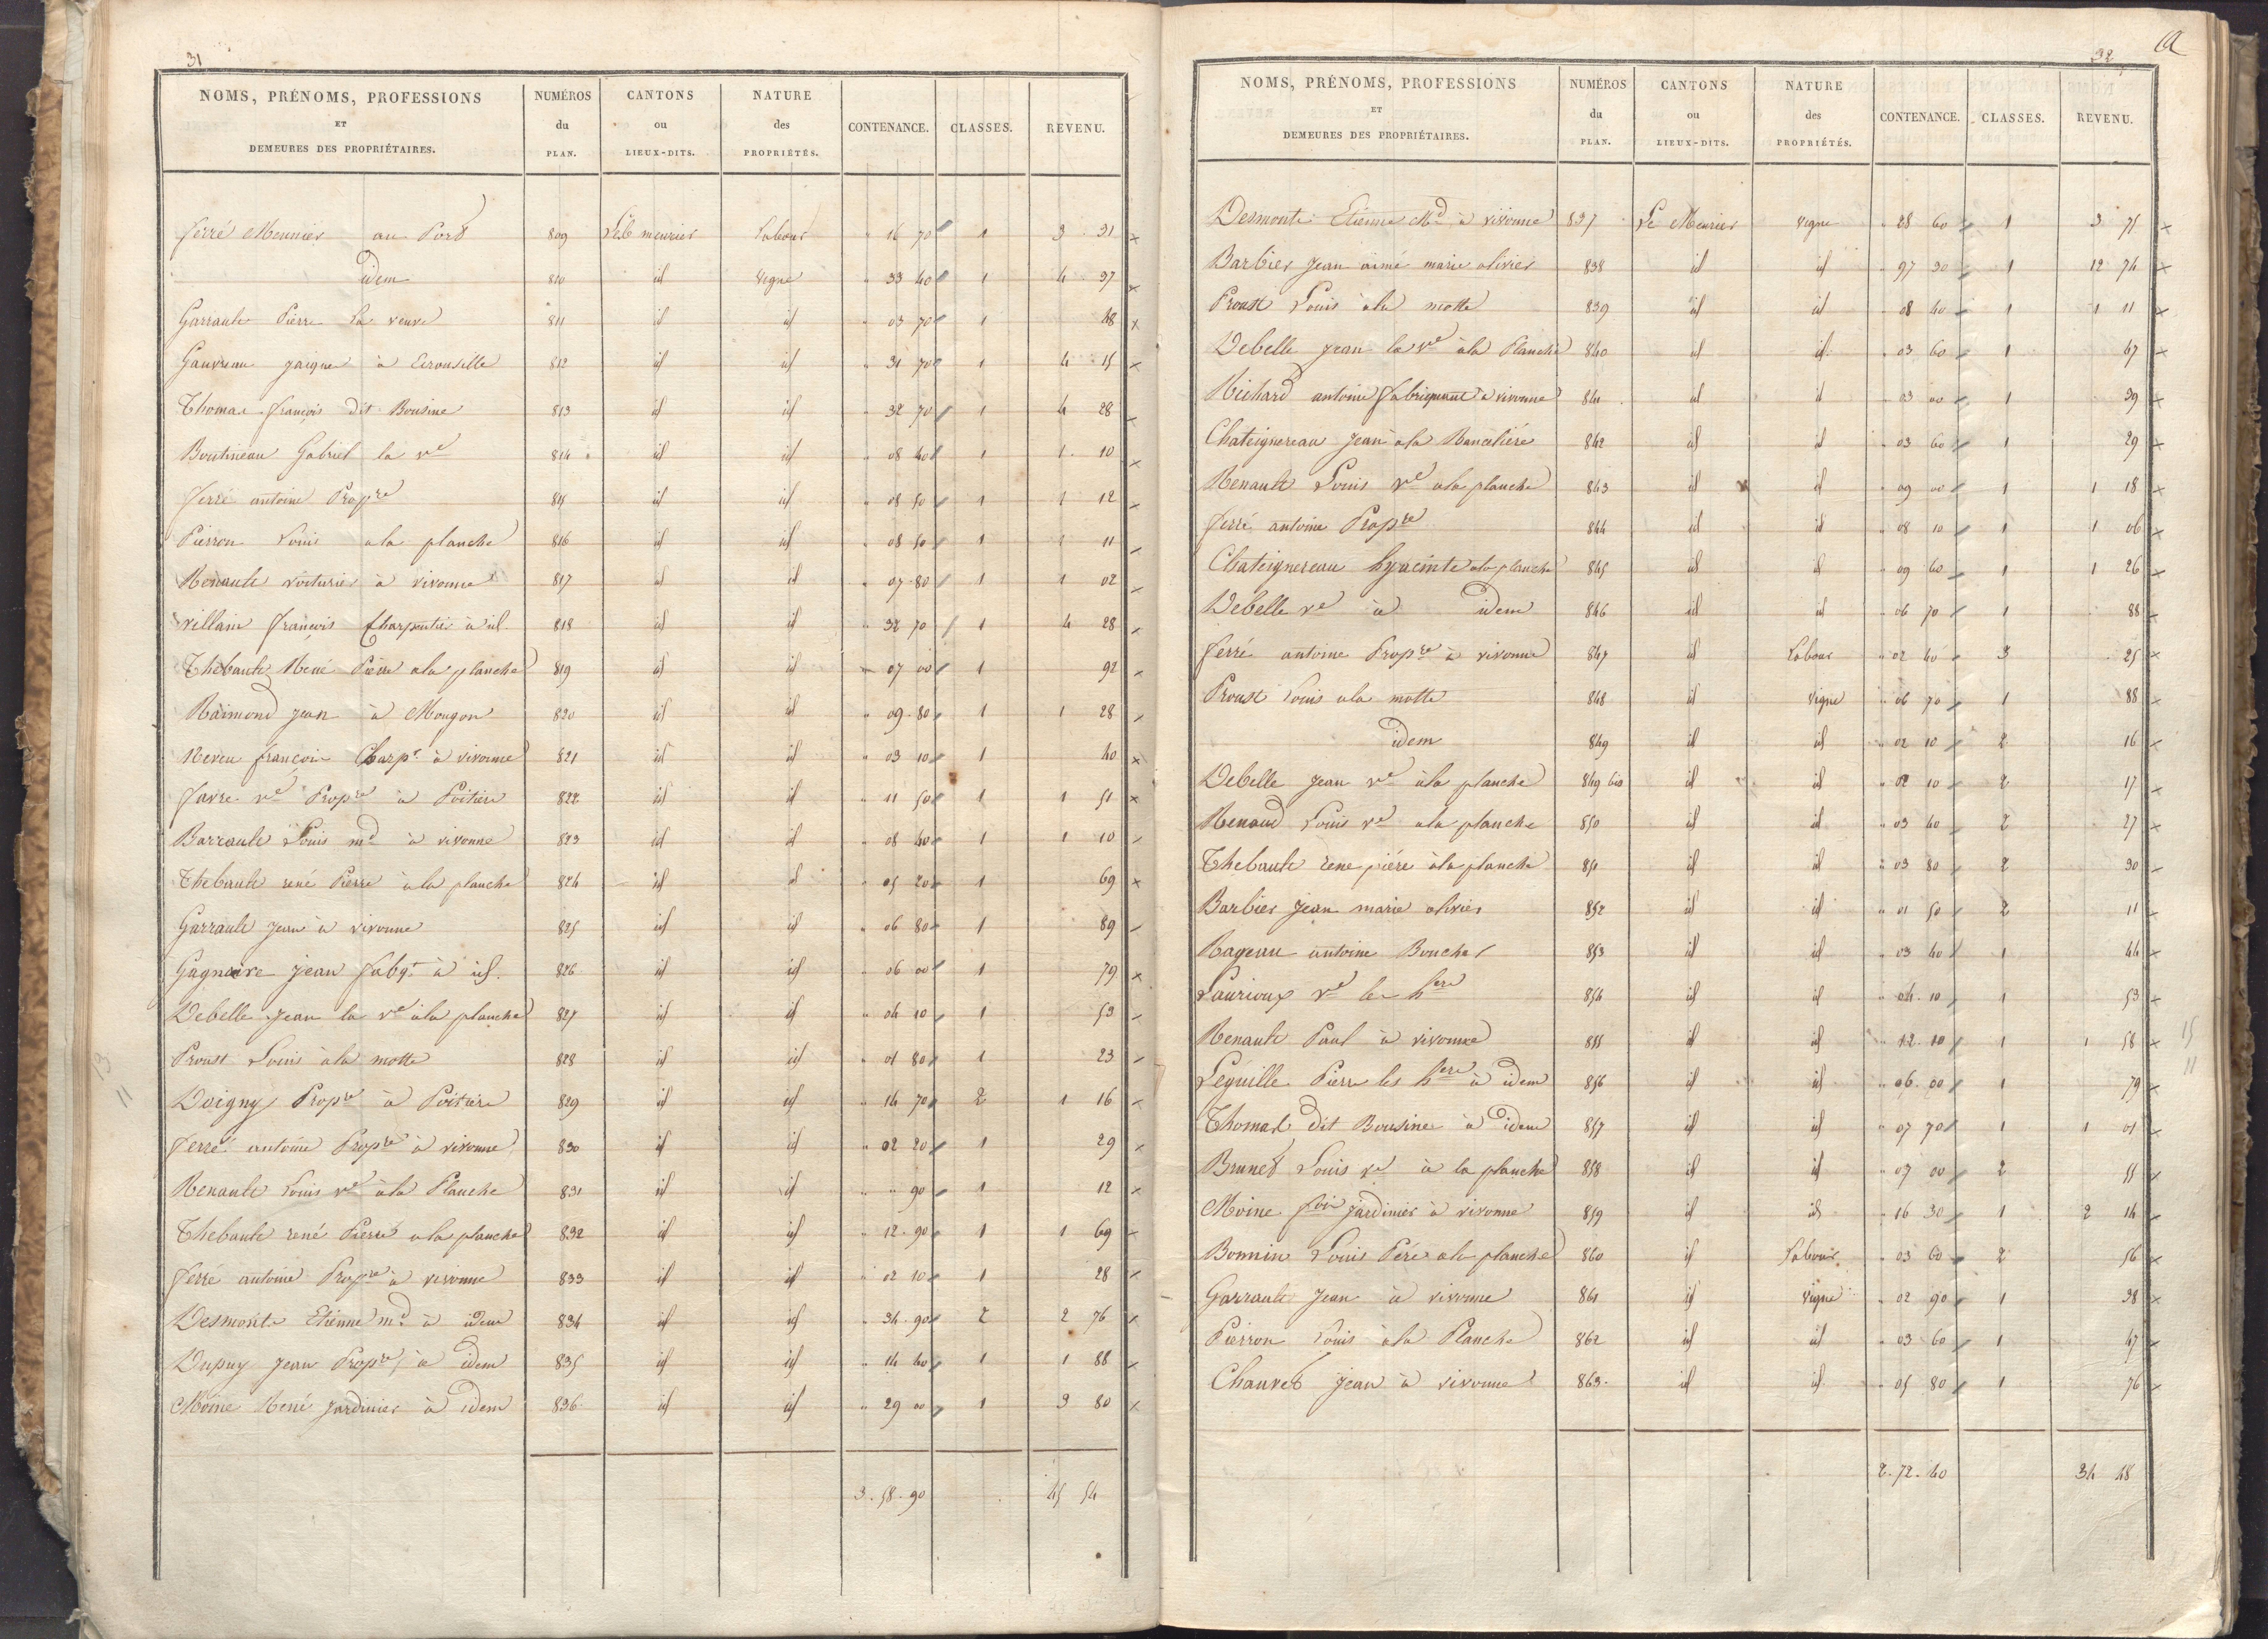 31
NOMS, PRÉNOMS, PROFESSIONS ET DEMEURES DES PROPRIÉTAIRES. NUMÉROS du PLAN. CANTONS ou LIEUX-DITS. NATURE des PROPRIÉTÉS. CONTENANCE. CLASSES. REVENU.
ferré Meunier au Port 809 meurier Labour " 16 70 1 3 31
idem 810 id vigne " 33 40 1 4 37
Garrault Pierre la veuve 811 id id " 03 70 1 48
Gauvreau à 812 id id " 31 70 1 4 15
Thomas françois dit Bousine 813 id id " 32 70 1 4 28
Boutineau Gabriel la ve 814 id id " 08 40 1 1 10
ferré antoine Propre 815 id id " 08 50 1 1 12
Pierron Louis a la planche 816 id id " 08 50 1 1 11
Renault voiturier à vivonne 817 id id " 07 80 1 1 02
villain françois Charpentier à id. 818 id id " 32 70 1 4 28
Thebault René Pierre a la planche 819 id id " 07 00 1 92
Raimond jean à Mougon 820 id id " 09 80 1 1 28
Neveu françois Charpt à vivonne 821 id id " 03 10 1 40
favre ve Propre à Poitiers 822 id id " 11 50 1 1 51
Barrault Louis md à vivonne 823 id id " 08 40 1 1 10
Thebault rené Pierre à la planche 824 id id " 05 20 1 69
Garrault jean à vivonne 825 id id " 06 80 1 89
Gagnaire jean fabqt à id. 826 id id " 06 00 1 79
Debelle jean la ve à la planche 827 id id " 04 10 1 53
Proust Louis à la motte 828 id id " 01 80 1 23
Doigny Propre à Poitiers 829 id id " 14 70 2 1 16
ferré antoine Propre à vivonne 830 id id " 02 20 1 29
Renault Louis ve à la Planche 831 id id " " 90 1 12
Thebault rené Pierre a la planche 832 id id " 12 90 1 1 69
ferré antoine Propre à vivonne 833 id id " 02 10 1 28
Desmonts Etienne md à idem 834 id id " 34 90 2 2 76
Dupuy jean Propre à idem 835 id id " 14 40 1 1 88
Moine René jardinier à idem 836 id id " 29 00 1 3 80
3.58.90 45 54
32
NOMS, PRÉNOMS, PROFESSIONS ET DEMEURES DES PROPRIÉTAIRES. NUMÉROS du PLAN. CANTONS ou LIEUX-DITS. NATURE des PROPRIÉTÉS. CONTENANCE. CLASSES. REVENU.
Desmonts Etienne Md à vivonne 837 Le Meurier vigne " 28 60 1 3 75
Barbier jean aimé marie olivier 838 id id " 97 30 1 12 74
Proust Louis à la motte 839 id id " 08 40 1 1 11
Debelle jean la ve à la Planche 840 id id " 03 60 1 47
Richard antoine fabriquant à vivonne 841 id id " 03 00 1 39
Chateignereau jean à la Rancelière 842 id id " 03 60 1 29
Renault Louis ve a la planche 843 id id " 09 00 1 1 18
ferré antoine Propre 844 id id " 08 10 1 1 06
Chateignereau hyacinte a la planche 845 id id " 09 60 1 1 26
Debelle ve à idem 846 id id " 06 70 1 88
ferré antoine Propre à vivonne 847 id Labour " 02 40 3 25
Proust Louis a la motte 848 id vigne " 06 70 1 88
idem 849 id id " 02 10 2 16
Debelle jean ve à la planche 849 bis id id " 02 10 2 17
Renaud Louis ve a la planche 850 id id " 03 40 2 27
Thebault rene piére à la planche 851 id id " 03 80 2 30
Barbier jean marie olivier 852 id id " 01 50 2 11
Rageau antoine Boucher 853 id id " 03 40 1 44
Laurioux ve les hers 854 id id " 04 10 1 53
Renault Paul à vivonne 855 id id " 12 10 1 1 58
Léguille Pierre les hers à idem 856 id id " 06 00 1 79
Thomas dit Bousine à idem 857 id id " 07 70 1 1 01
Brunet Louis ve à la planche 858 id id " 07 00 2 55
Moine fois jardinier à vivonne 859 id id " 16 30 1 2 14
Bonnin Louis Père a la planche 860 id Labour " 03 60 2 56
Garrault jean à vivonne 861 id vigne " 02 90 1 38
Pierron Louis à la Planche 862 id id " 03 60 1 47
Chauvet jean à vivonne 863 id id " 05 80 1 76
2.72.40 34 48